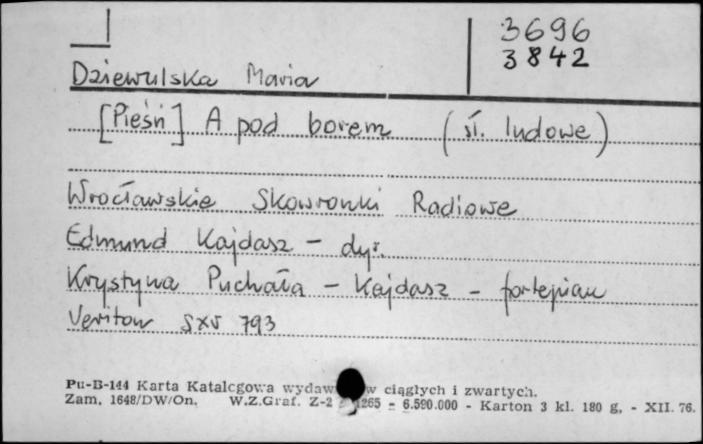 3696
3842
Dziewulska Maria
[Pieśń] A pod borem (sł. ludowe)
Wrocławskie Skowronki Radiowe
Edmund Kajdasz - dyr.
Krystyna Puchała - Kajdasz - fortepian
Veriton SXV 793
Pu-B-144 Karta Katalogowa wydaw w ciągłych i zwartych.
Zam. 1648/DW/On. W.Z.Graf. Z-2 z. 1265 - 6.590.000 - Karton 3 kl. 180 g, - XII. 76.